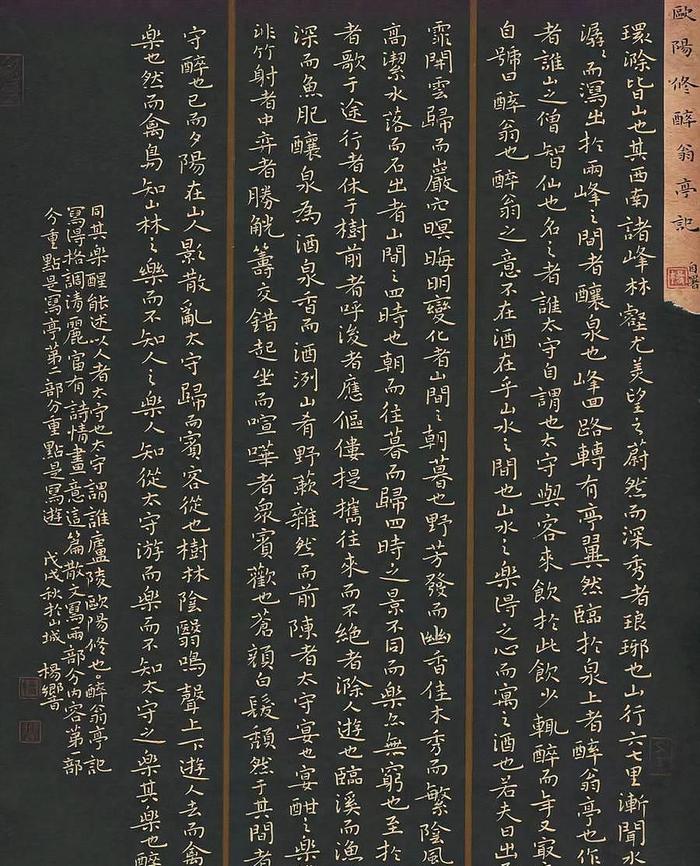 歐陽修醉翁亭記
自署
環滁皆山也其西南諸峰林壑尤美望之蔚然而深秀者琅琊也山行六七里漸聞水
潺潺而瀉出於兩峰之間者釀泉也峰回路轉有亭翼然臨於泉上者醉翁亭也作
者誰山之僧智仙也名之者誰太守自謂也太守與客來飲於此飲少輒醉而年又最
自號曰醉翁也醉翁之意不在酒在乎山水之間也山水之樂得之心而寓之酒也若夫日出
霏開雲歸而巖穴暝晦明變化者山間之朝暮也野芳發而幽香佳木秀而繁陰風
高潔水落而石出者山間之四時也朝而往暮而歸四時之景不同而樂亦無窮也至於
者歌于途行者休于樹前者呼後者應傴僂提攜往來而不絕者滁人遊也臨溪而漁
深而魚肥釀泉為酒泉香而酒洌山肴野蔌雜然而前陳者太守宴也宴酣之樂
非竹射者中弈者勝觥籌交錯起坐而喧嘩者衆賓歡也蒼顏白髮頹然于其間者
守醉也已而夕陽在山人影散亂太守歸而賓客從也樹林陰翳鳴聲上下遊人去而禽
樂也然而禽鳥知山林之樂而不知人之樂人知從太守游而樂而不知太守之樂其樂也醉
同其樂醒能述以人者太守也太守謂誰廬陵歐陽修也醉翁亭記
寫得格調清麗富有詩情畫意這篇散文寫兩部分內容第一部
分重點是寫亭第二部分重點是寫遊 戊戌秋於山城 楊鄉音